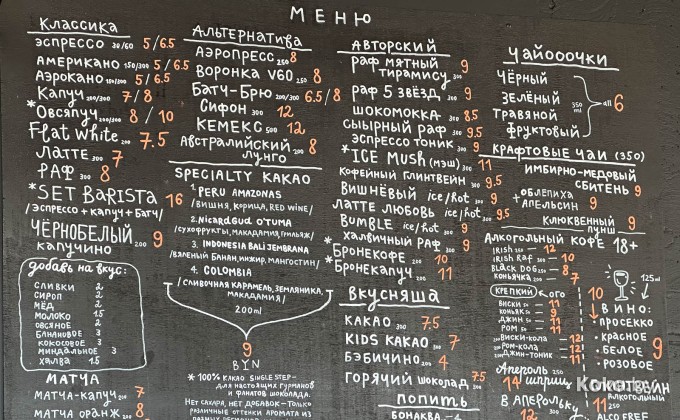 МЕНЮ
КЛАССИКА
ЭСПРЕССО 30/60 5/6.5
АМЕРИКАНО 150/300 5/6.5
АЭРОКАНО 5/6.5
КАПУЧ 200/300 7/8
*ОВСЯПУЧ 200/300 8/10
Flat White 200 7.5
ЛАТТЕ 300 7
РАФ 300 8
*SET BARISTA 16
/ЭСПРЕССО+КАПУЧ+БАТЧ/
ЧЁРНОБЕЛЫЙ 200 9
КАПУЧИНО
ДОБАВЬ НА ВКУС:
СЛИВКИ 2
СИРОП 2
МЁД 2
МОЛОКО 1.5
ОВСЯНОЕ 2
БАНАНОВОЕ 3
КОКОСОВОЕ 3
МИНДАЛЬНОЕ 3
ХАЛВА 1.5
МАТЧА
МАТЧА-КАПУЧ 200 7
МАТЧА ОРАНЖ 300 8
АЛЬТЕРНАТИВА
АЭРОПРЕСС 250 8
ВОРОНКА V60 250 8
БАТЧ-БРЮ 200/300 6.5/8
СИФОН 300 12
КЕМЕКС 500 12
АВСТРАЛИЙСКИЙ 200 8
ЛУНГО
SPECIALTY КАКАО
1. PERU AMAZONAS
/ВИШНЯ, КОРИЦА, RED WINE/
2. NICARDGUD O'TUMA
/СУХОФРУКТЫ, МАКАДАМИЯ, ГРИЛЬЯЖ/
3. INDONESIA BALI JEMBRANA
/ВЯЛЕНЫЙ БАНАН, ИНЖИР, МАНГОСТИН/
4. COLOMBIA
/СЛИВОЧНАЯ КАРАМЕЛЬ, ЗЕМЛЯНИКА,
МАКАДАМИЯ/
200ml
9
BYN
*100% КАКАО SINGLE STEP-
ДЛЯ НАСТОЯЩИХ ГУРМАНОВ
И ФАНАТОВ ШОКОЛАДА.
НЕТ САХАРА, НЕТ ДОБАВОК-ТОЛЬКО
РАЗЛИЧНЫЕ ОТТЕНКИ АРОМАТА ИЗ
АВТОРСКИЙ
РАФ МЯТНЫЙ 9
ТИРАМИСУ 300
РАФ 5 ЗВЁЗД 300 9
ШОКОМОККА 300 8.5
СЫЫРНЫЙ РАФ 300 9.5
ЭСПРЕССО ТОНИК 300 9
*ICE MUSH (МЭШ) 300 11
КОФЕЙНЫЙ ГЛИНТВЕЙН 300 9.5
ВИШНЁВЫЙ ice/hot 300 9
ЛАТТЕ ЛЮБОВЬ ice/hot 300 9.5
BUMBLE ice/hot 300 9
ХАЛВИЧНЫЙ РАФ 300 9
*БРОНЕКОФЕ 200 10
*БРОНЕКАПУЧ 200 11
ВКУСНЯША
КАКАО 300 7.5
KIDS КАКАО 200 7
БЭБИЧИНО 200 4
ГОРЯЧИЙ ШОКОЛАД 200 7.5
ПОПИТЬ
БОНАКВА
ЧАЙОООЧКИ
ЧЁРНЫЙ
ЗЕЛЁНЫЙ
ТРАВЯНОЙ
ФРУКТОВЫЙ
350 ml
all 6
КРАФТОВЫЕ ЧАИ (350)
ИМБИРНО-МЕДОВЫЙ
СБИТЕНЬ 9
+ОБЛЕПИХА
АПЕЛЬСИН 9
КЛЮКВЕННЫЙ
ПУНШ 9
АЛКОГОЛЬНЫЙ КОФЕ 18+
IRISH 250 — 12
IRISH Raf 300 — 10
BLACK DOG 250 — 8
КОНЬЯЧКА 200 — 7
(КРЕПКИЙ) АЛКОГО
ВИСКИ 50 — 11
КОНЬЯК 50 — 9
ДЖИН 50 — 11
РОМ 50 — 11
ВИСКИ-КОЛА 12
РОМ-КОЛА 12
ДЖИН-ТОНИК 11
Апероль
ШПРИЦ 14
В АПЕРОЛЬ
12
125ml
10
ВИНО:
• ПРОСЕККО
• КРАСНОЕ
• БЕЛОЕ
• РОЗОВОЕ
9
АЛКОГОЛЬНЫЙ
11
ALCOFREE
Koko.by